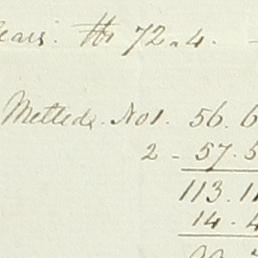 ears. lb 72.4.
Melted. No 1. 56.6
2 - 57.5
113.11
14.4